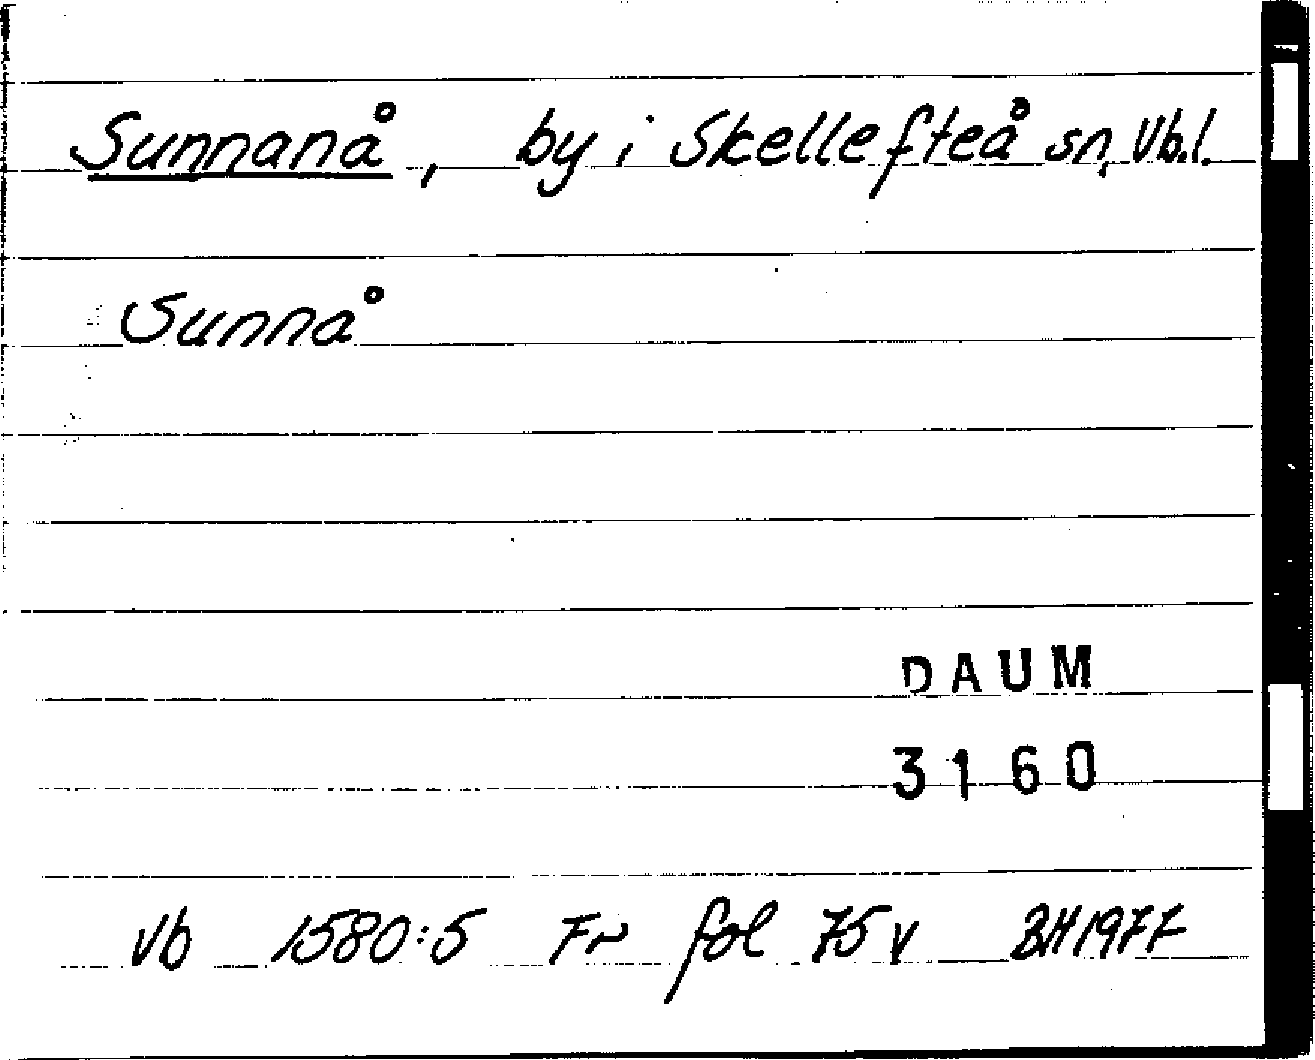 Sunnanå, by i Skellefteå sn, Vb.l.
Sunnå
DAUM
3160
Vb 1580:5 Fr fol 75 v BH1977